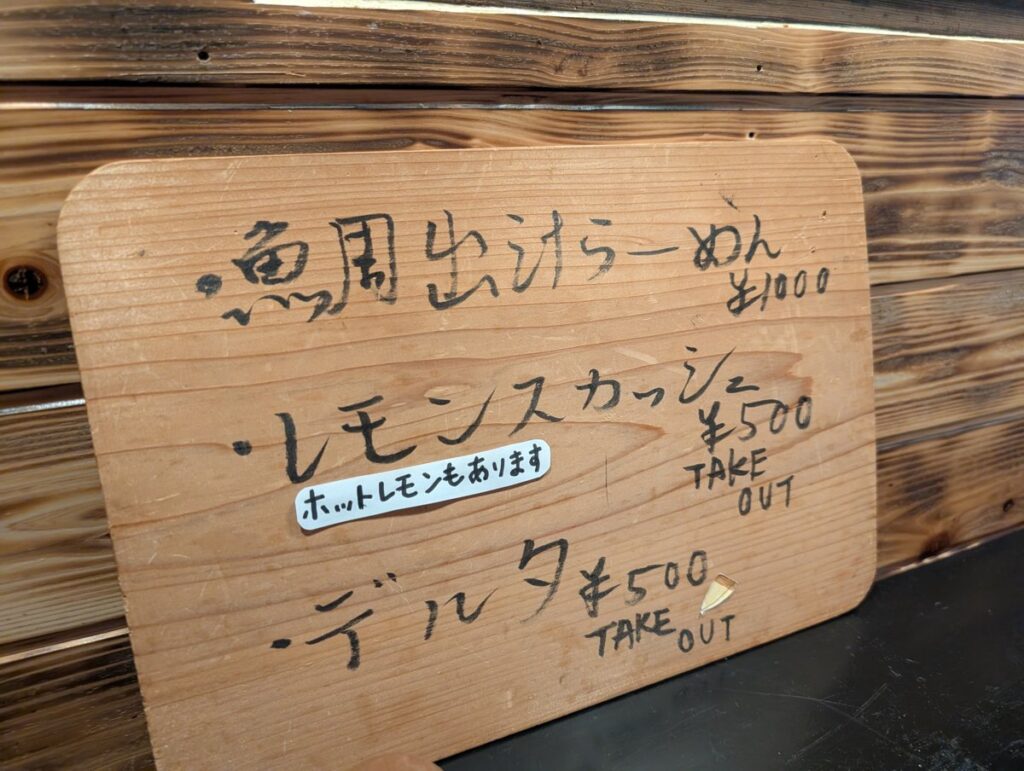 ・鯛出汁らーめん
¥1000
・レモンスカッシュ
¥500
TAKE
OUT
ホットレモンもあります
・デルタ ¥500
TAKE OUT